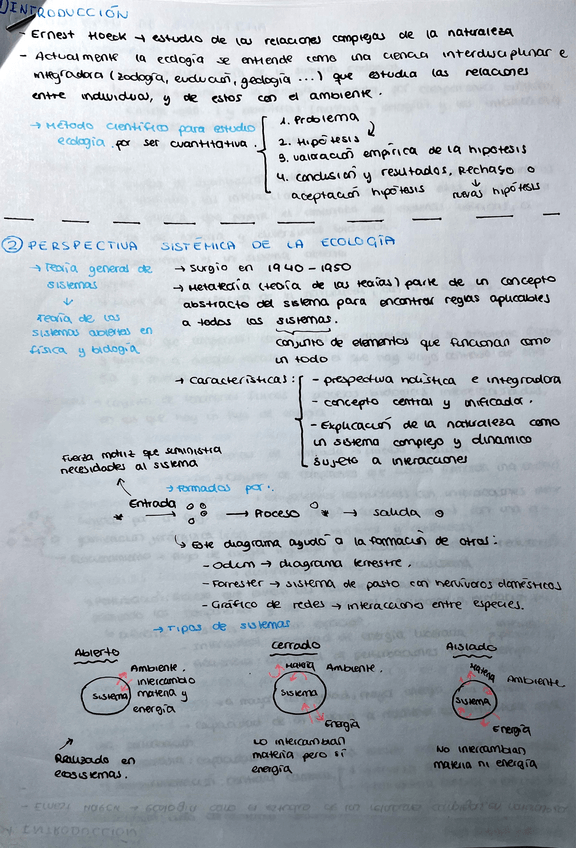 1) INTRODUCCIÓN
- Ernest Haeck → estudio de las relaciones complejas de la naturaleza
- Actualmente la ecología se entiende como una ciencia interdisciplinar e
integradora (zoología, evolución, geología ...) que estudia las relaciones
entre individuos, y de estos con el ambiente.
→ Método científico para estudio
ecología por ser cuantitativa.
1. Problema
2. Hipótesis
3. valoración empírica de la hipótesis
4. conclusión y resultados, Rechaso o
aceptación hipótesis → nuevas hipótesis
② PERSPECTIVA SISTÉMICA DE LA ECOLOGÍA
→ Teoría general de
sistemas
↓
Teoría de los
sistemas abiertos en
física y biología
→ Surgio en 1940 - 1950
→ Metateoría (teoría de las teorías) parte de un concepto
abstracto del sistema para encontrar reglas aplicables
a todos los sistemas.
conjunto de elementos que funcionan como
un todo
→ características:
- prespectiva holística e integradora
- concepto central y unificada.
- Explicación de la naturaleza como
un sistema complejo y dinamico
sujeto a interacciones
Fuerza motriz que suministra
necesidades al sistema
→ Formados por:
Entrada → Proceso → salida
↳ Este diagrama ayudó a la formación de otros:
- Odum → diagrama terrestre.
- Forrester → sistema de pasto con hervívoros domésticos
- Gráfico de redes → interacciono entre especies.
→ Tipos de sistemas
Abierto
Sistema
Ambiente.
intercambio
materia y
energía
Realizado en
ecosistemas.
Cerrado
Materia
Ambiente.
Sistema
Energía
Lo intercambian
materia pero sí
energía
Aislado
Materia
Ambiente
Sistema
Energía
No intercambian
materia ni energía